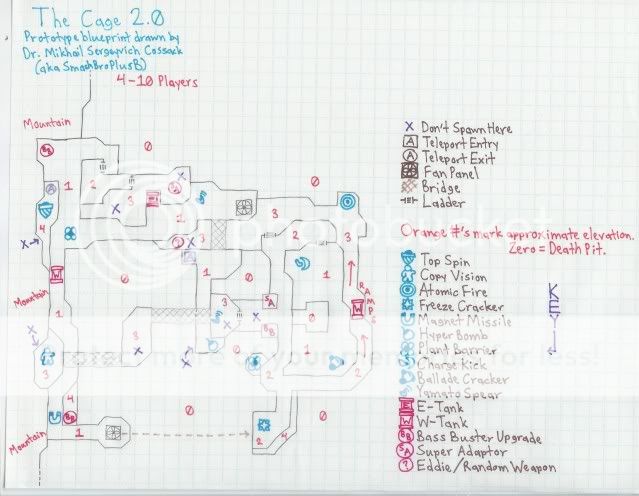 The Cage 2.0
Prototype blueprint drawn by
Dr. Mikhail Sergeyvich Cossack
(aka SmashBroPlusB)
4-10 Players
Mountain
Mountain
Mountain
RAMPS
X Don't Spawn Here
A Teleport Entry
A Teleport Exit
Fan Panel
Bridge
Ladder
Orange #'s mark approximate elevation.
Zero = Death Pit.
Top Spin
Copy Vision
Atomic Fire
Freeze Cracker
Magnet Missile
Hyper Bomb
Plant Barrier
Charge Kick
Ballade Cracker
Yamato Spear
E E-Tank
W W-Tank
BB Bass Buster Upgrade
SA Super Adaptor
? Eddie/Random Weapon
KEY